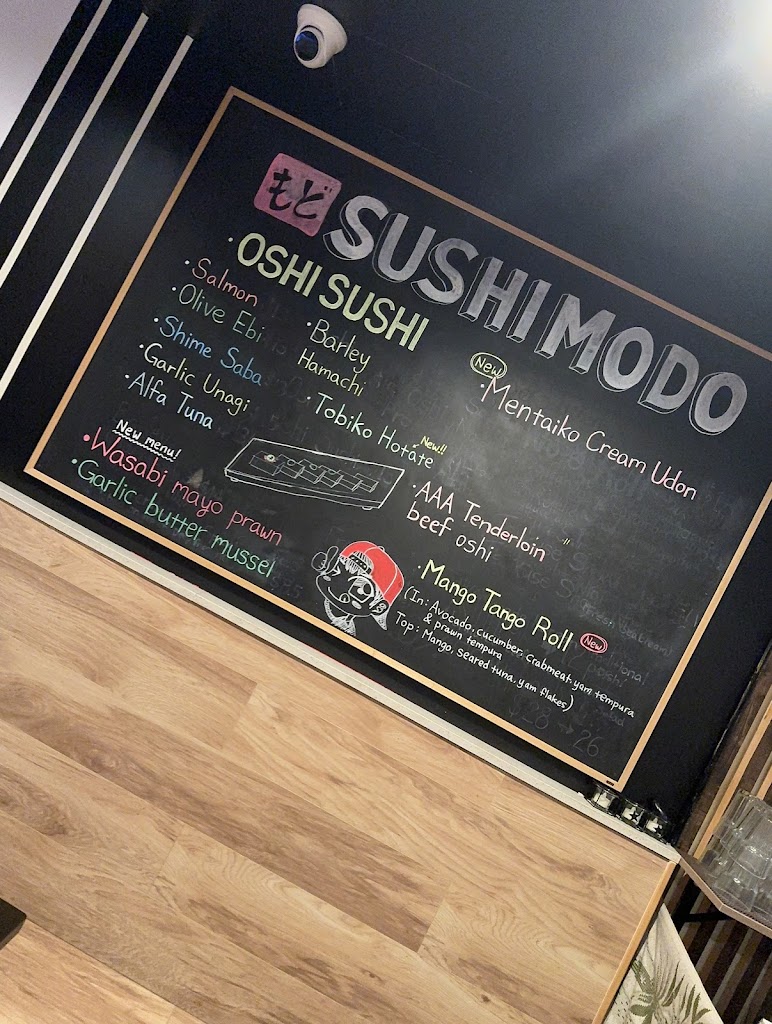 もど SUSHI MODO
· OSHI SUSHI
· Salmon
· Olive Ebi
· Shime Saba
· Garlic Unagi
· Alfa Tuna
· Barley
Hamachi
· Tobiko Hotate
New menu!
· Wasabi mayo prawn
· Garlic butter mussel
New
· Mentaiko Cream Udon
New!!
· AAA Tenderloin
beef oshi
· Mango Tango Roll New
(In: Avocado, cucumber, crabmeat, yam tempura
& prawn tempura
Top: Mango, seared tuna, yam flakes)